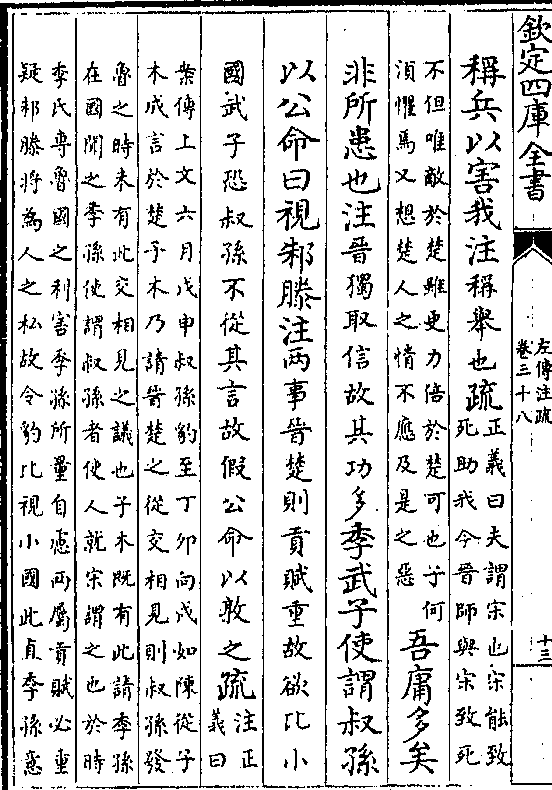 欽定四庫全書
左傳注疏
卷三十八
十三
稱兵以害我注稱舉也疏
正義曰夫謂宋也宋能致
死助我今晉師與宋致死
不但唯敵於楚雖更力倍於楚可也子何
須懼焉又想楚人之情不應及是之惡
吾庸多矣
非所患也注晉獨取信故其功多季武子使謂叔孫
以公命曰視邾滕注兩事晉楚則貢賦重故欲比小
國武子恐叔孫不從其言故假公命以敦之疏
注正
義曰
案傳上文六月戊申叔孫豹至丁卯向戌如陳從子
木成言於楚子木乃請晉楚之從交相見則叔孫發
魯之時未有此交相見之議也子木既有此請季孫
在國聞之季孫使謂叔孫者使人就宋謂之也於時
季氏專魯國之利害季孫所量自慮兩屬貢賦必重
疑邾滕將為人之私故令豹比視小國此真季孫意